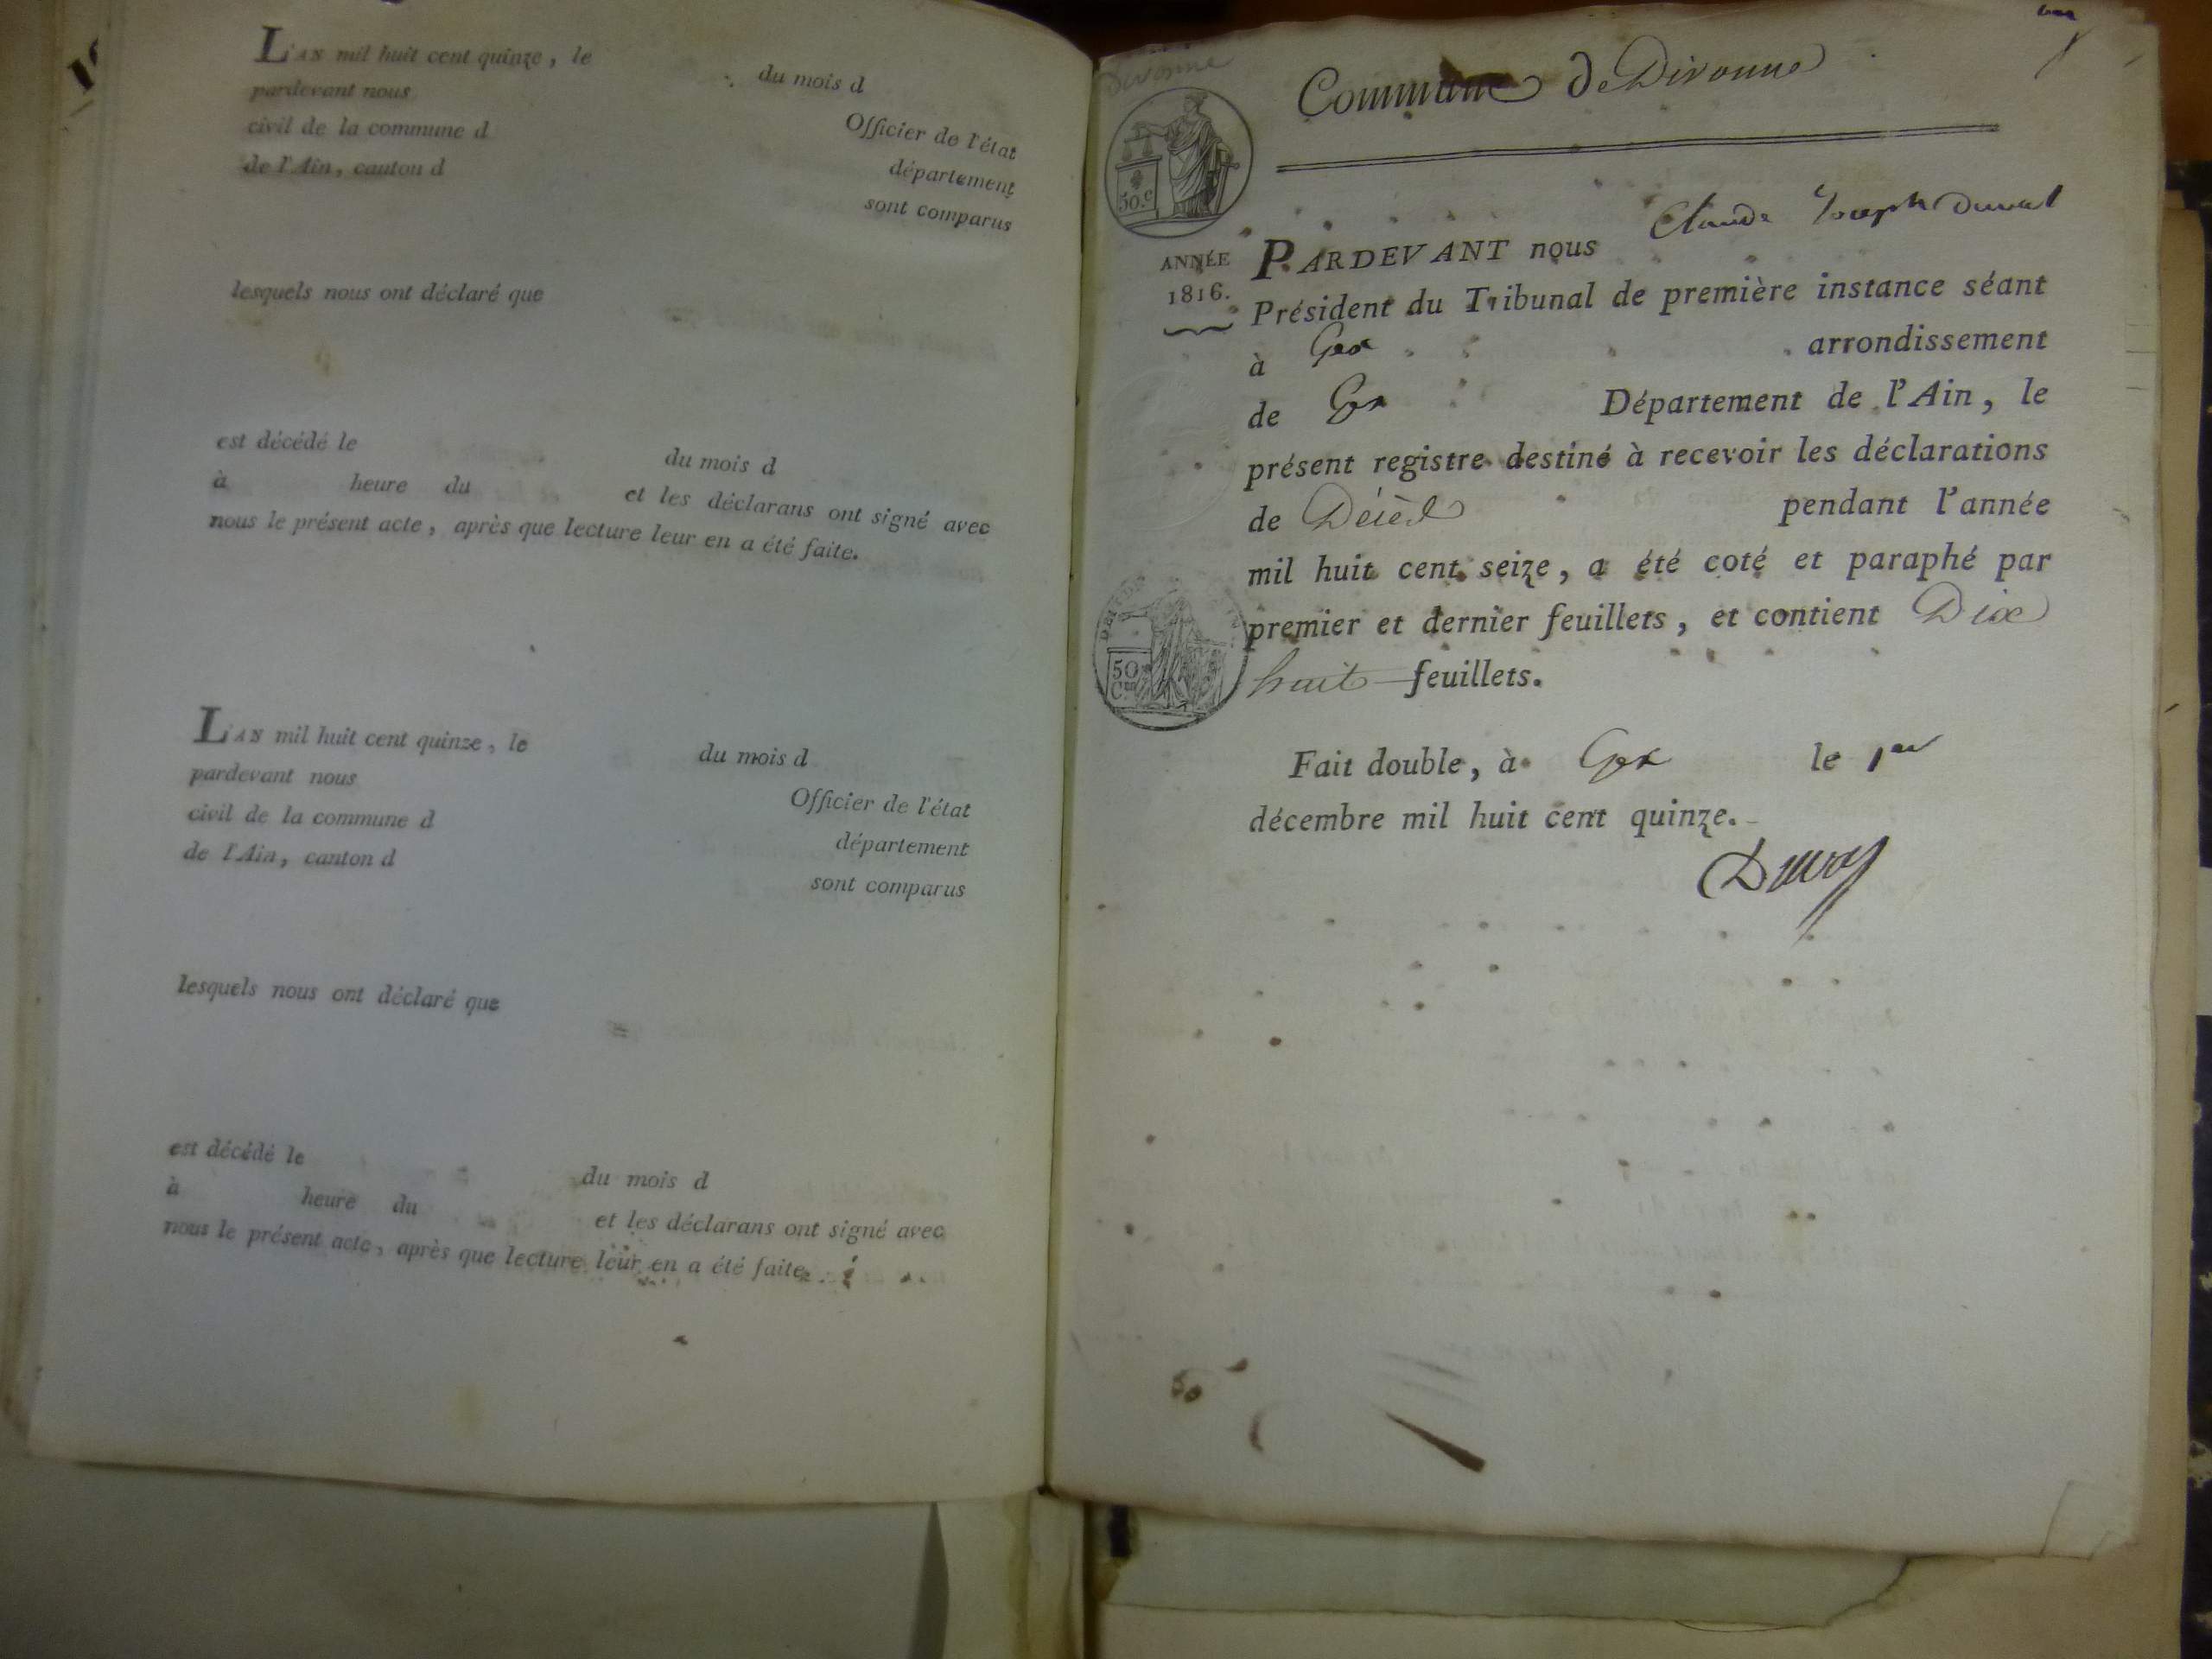 L'AN mil huit cent quinze, le du mois d
pardevant nous Officier de l'état
civil de la commune d département
de l'Ain, canton d sont comparus
lesquels nous ont déclaré que
est décédé le du mois d
à heure du et les déclarans ont signé avec
nous le présent acte, après que lecture leur en a été faite.
L'AN mil huit cent quinze, le du mois d
pardevant nous Officier de l'état
civil de la commune d département
de l'Ain, canton d sont comparus
lesquels nous ont déclaré que
est décédé le du mois d
à heure du et les déclarans ont signé avec
nous le présent acte, après que lecture leur en a été faite.
Divonne
Commune de Divonne
50.c
ANNÉE
1816.
PARDEVANT nous Claude Joseph Duval
Président du Tribunal de première instance séant
à Gex arrondissement
de Gex Département de l'Ain, le
présent registre destiné à recevoir les déclarations
de Décès pendant l'année
mil huit cent seize, a été coté et paraphé par
premier et dernier feuillets, et contient Dix
huit feuillets.
50
Ces
Fait double, à Gex le 1er
décembre mil huit cent quinze.
Duval